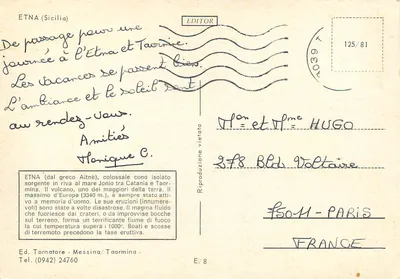 ETNA (Sicilia)
EDITOR
De passage pour une
journée à l'Etna et Taormine.
Les vacances se passent bien.
L'ambiance et le soleil sont
au rendez-vous.
Amitiés
Monique C.
125/81
Mon et Mme HUGO
278 Bld Voltaire
75011 - PARIS
FRANCE
Riproduzione vietata
ETNA (dal greco Aitnè), colossale cono isolato
sorgente in riva al mare Jonio tra Catania e Taor-
mina. Il vulcano, uno dei maggiori della terra, il
massimo d'Europa (3340 m.), è sempre stato atti-
vo a memoria d'uomo. Le sue eruzioni (innumere-
voli) sono state a volte disastrose. Il magma fluido
che fuoriesce dai crateri, o da improvvise bocche
sul terreno, forma un terrificante fiume di fuoco
la cui temperatura supera i 1000°. Boati e scosse
di terremoto precedono la fase eruttiva.
Ed. Tornatore - Messina/Taormina -
Tel. (0942) 24760
E/8